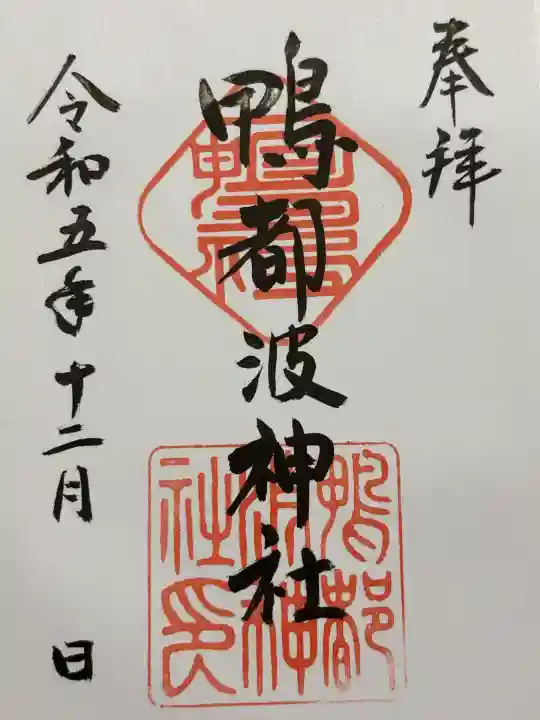 奉拝
鴨都波神社
令和五年十二月 日
鴨都
波神
社印